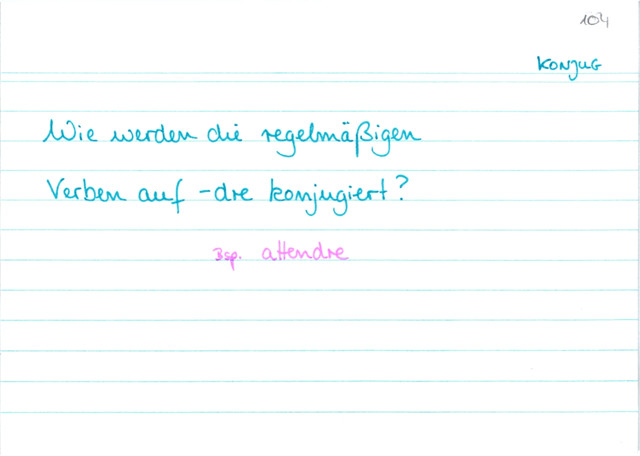 104
KONJUG
Wie werden die regelmäßigen
Verben auf -dre konjugiert?
Bsp. attendre